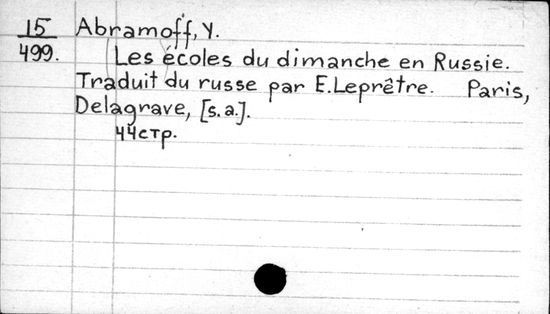 15 Abramoff, Y.
499. Les écoles du dimanche en Russie.
Traduit du russe par E. Leprêtre. Paris,
Delagrave, [s.a.].
44стр.